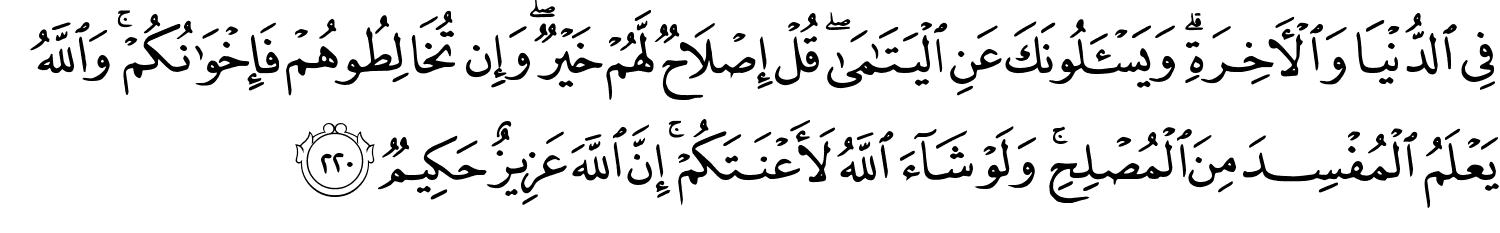 فِي ٱلدُّنۡيَا وَٱلۡأٓخِرَةِۗ وَيَسۡـَٔلُونَكَ عَنِ ٱلۡيَتَٰمَىٰۖ قُلۡ إِصۡلَاحٞ لَّهُمۡ خَيۡرٞۖ وَإِن تُخَالِطُوهُمۡ فَإِخۡوَٰنُكُمۡۚ وَٱللَّهُ
يَعۡلَمُ ٱلۡمُفۡسِدَ مِنَ ٱلۡمُصۡلِحِۚ وَلَوۡ شَآءَ ٱللَّهُ لَأَعۡنَتَكُمۡۚ إِنَّ ٱللَّهَ عَزِيزٌ حَكِيمٞ ٢٢٠